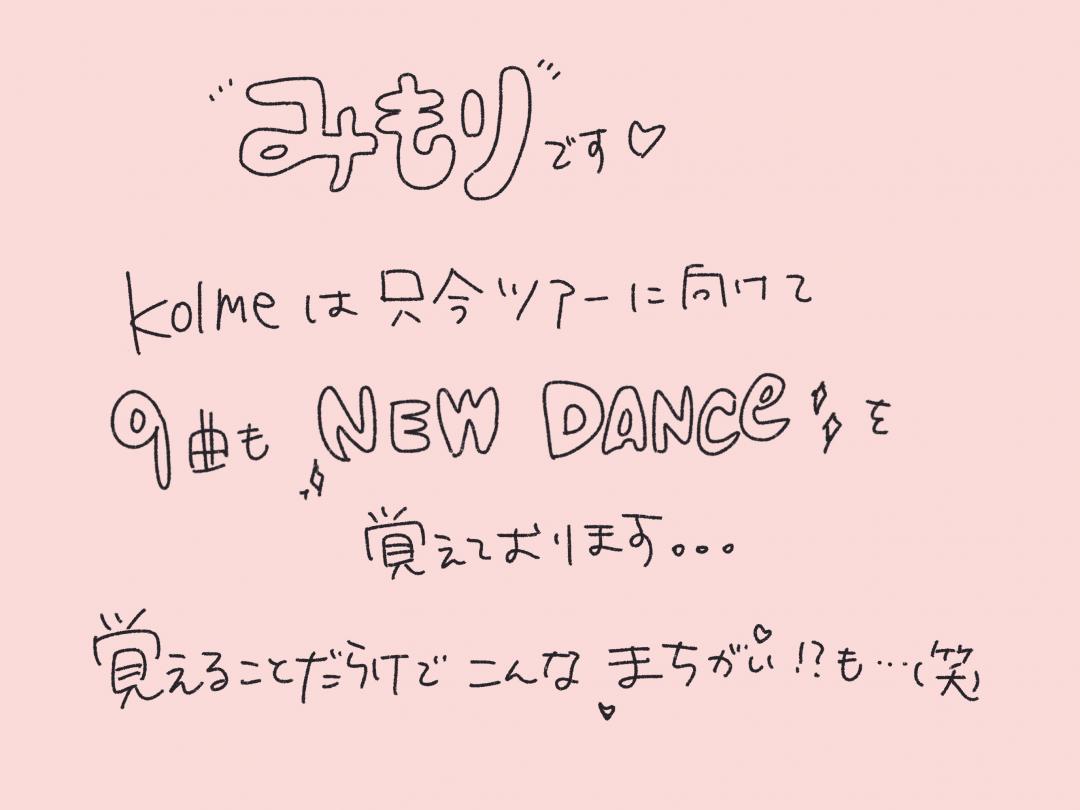 みもりです♡
kolmeは只今ツアーに向けて
9曲も NEW DANCe を
覚えております。。。
覚えることだらけで こんな まちがい!?も…(笑)